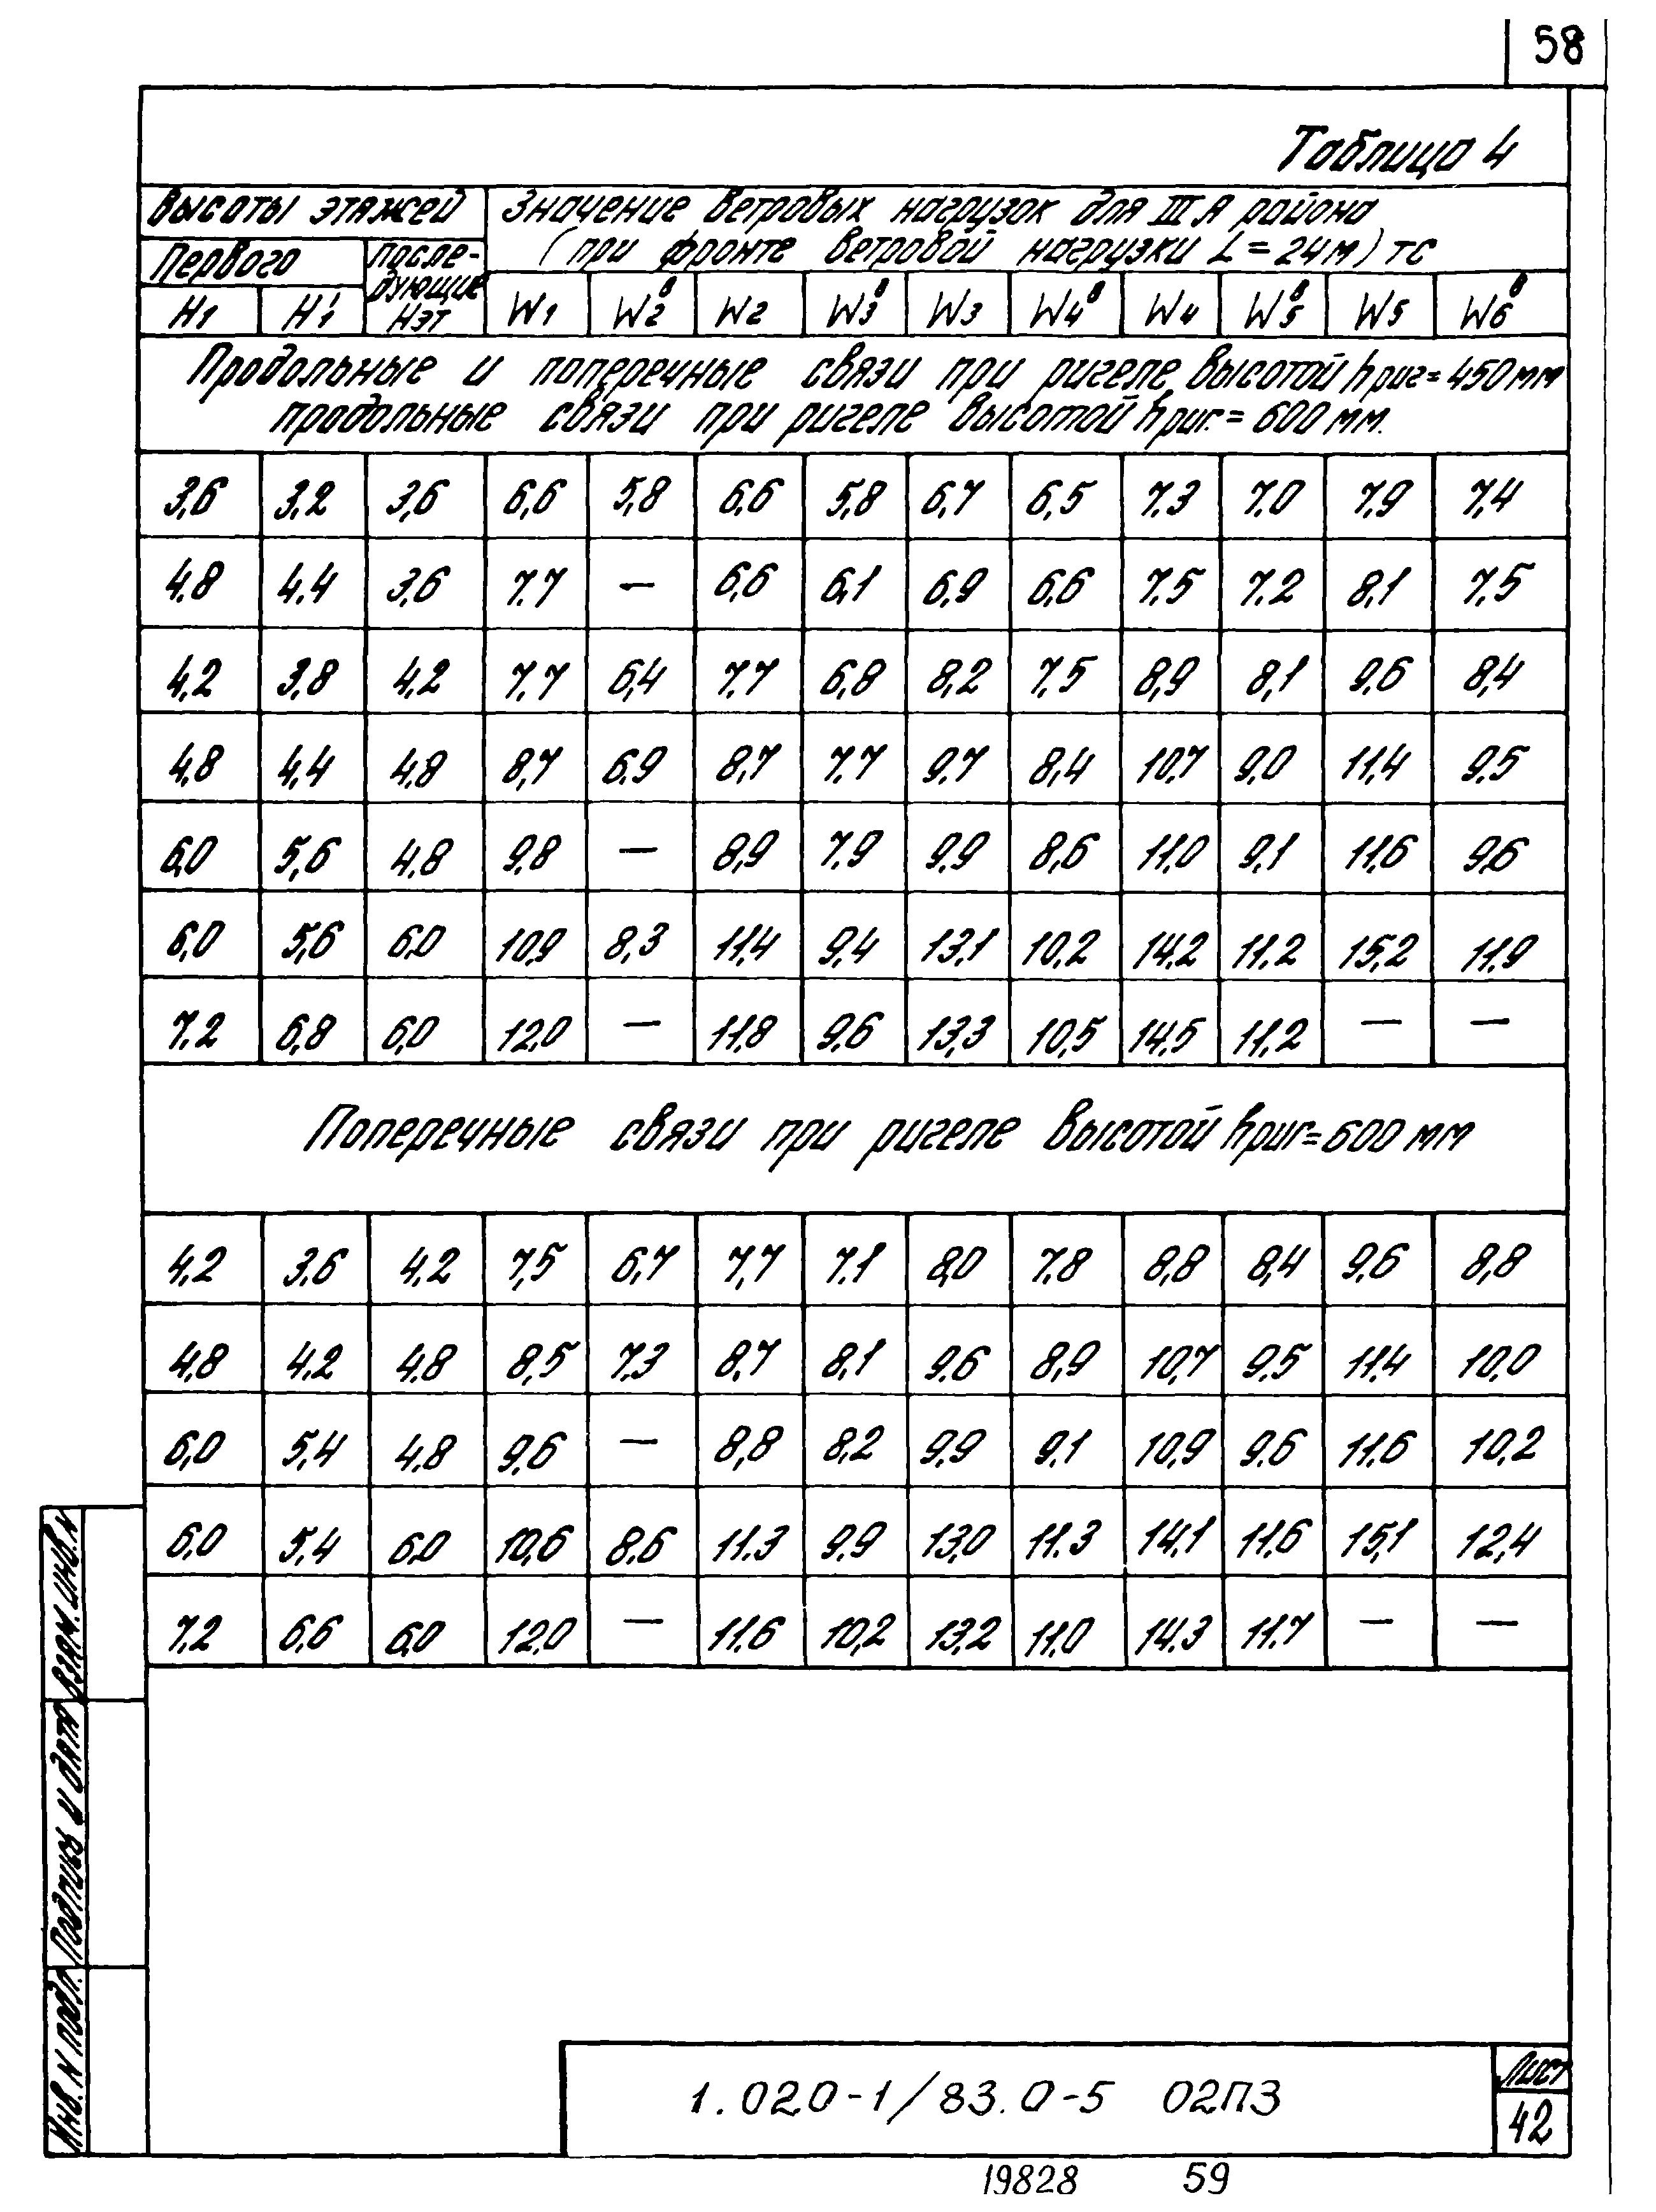 58
Таблица 4
Высоты этажей
Значение ветровых нагрузок для III А района
(при фронте ветровой нагрузки L = 24 м) тс
Первого
после-
дующие
Нэт
H1 H1' W1 W2в W2 W3в W3 W4в W4 W5в W5 W6в
Продольные и поперечные связи при ригеле высотой hриг= 450 мм
продольные связи при ригеле высотой hриг.= 600 мм.
3,6 3,2 3,6 6,6 5,8 6,6 5,8 6,7 6,5 7,3 7,0 7,9 7,4
4,8 4,4 3,6 7,7 — 6,6 6,1 6,9 6,6 7,5 7,2 8,1 7,5
4,2 3,8 4,2 7,7 6,4 7,7 6,8 8,2 7,5 8,9 8,1 9,6 8,4
4,8 4,4 4,8 8,7 6,9 8,7 7,7 9,7 8,4 10,7 9,0 11,4 9,5
6,0 5,6 4,8 9,8 — 8,9 7,9 9,9 8,6 11,0 9,1 11,6 9,6
6,0 5,6 6,0 10,9 8,3 11,4 9,4 13,1 10,2 14,2 11,2 15,2 11,9
7,2 6,8 6,0 12,0 — 11,8 9,6 13,3 10,5 14,5 11,2 — —
Поперечные связи при ригеле высотой hриг= 600 мм
4,2 3,6 4,2 7,5 6,7 7,7 7,1 8,0 7,8 8,8 8,4 9,6 8,8
4,8 4,2 4,8 8,5 7,3 8,7 8,1 9,6 8,9 10,7 9,5 11,4 10,0
6,0 5,4 4,8 9,6 — 8,8 8,2 9,9 9,1 10,9 9,6 11,6 10,2
6,0 5,4 6,0 10,6 8,6 11,3 9,9 13,0 11,3 14,1 11,6 15,1 12,4
7,2 6,6 6,0 12,0 — 11,6 10,2 13,2 11,0 14,3 11,7 — —
Взам. инв. N
Подпись и дата
Инв. N подл.
1.020-1/83.0-5 02ПЗ
Лист
42
19828 59